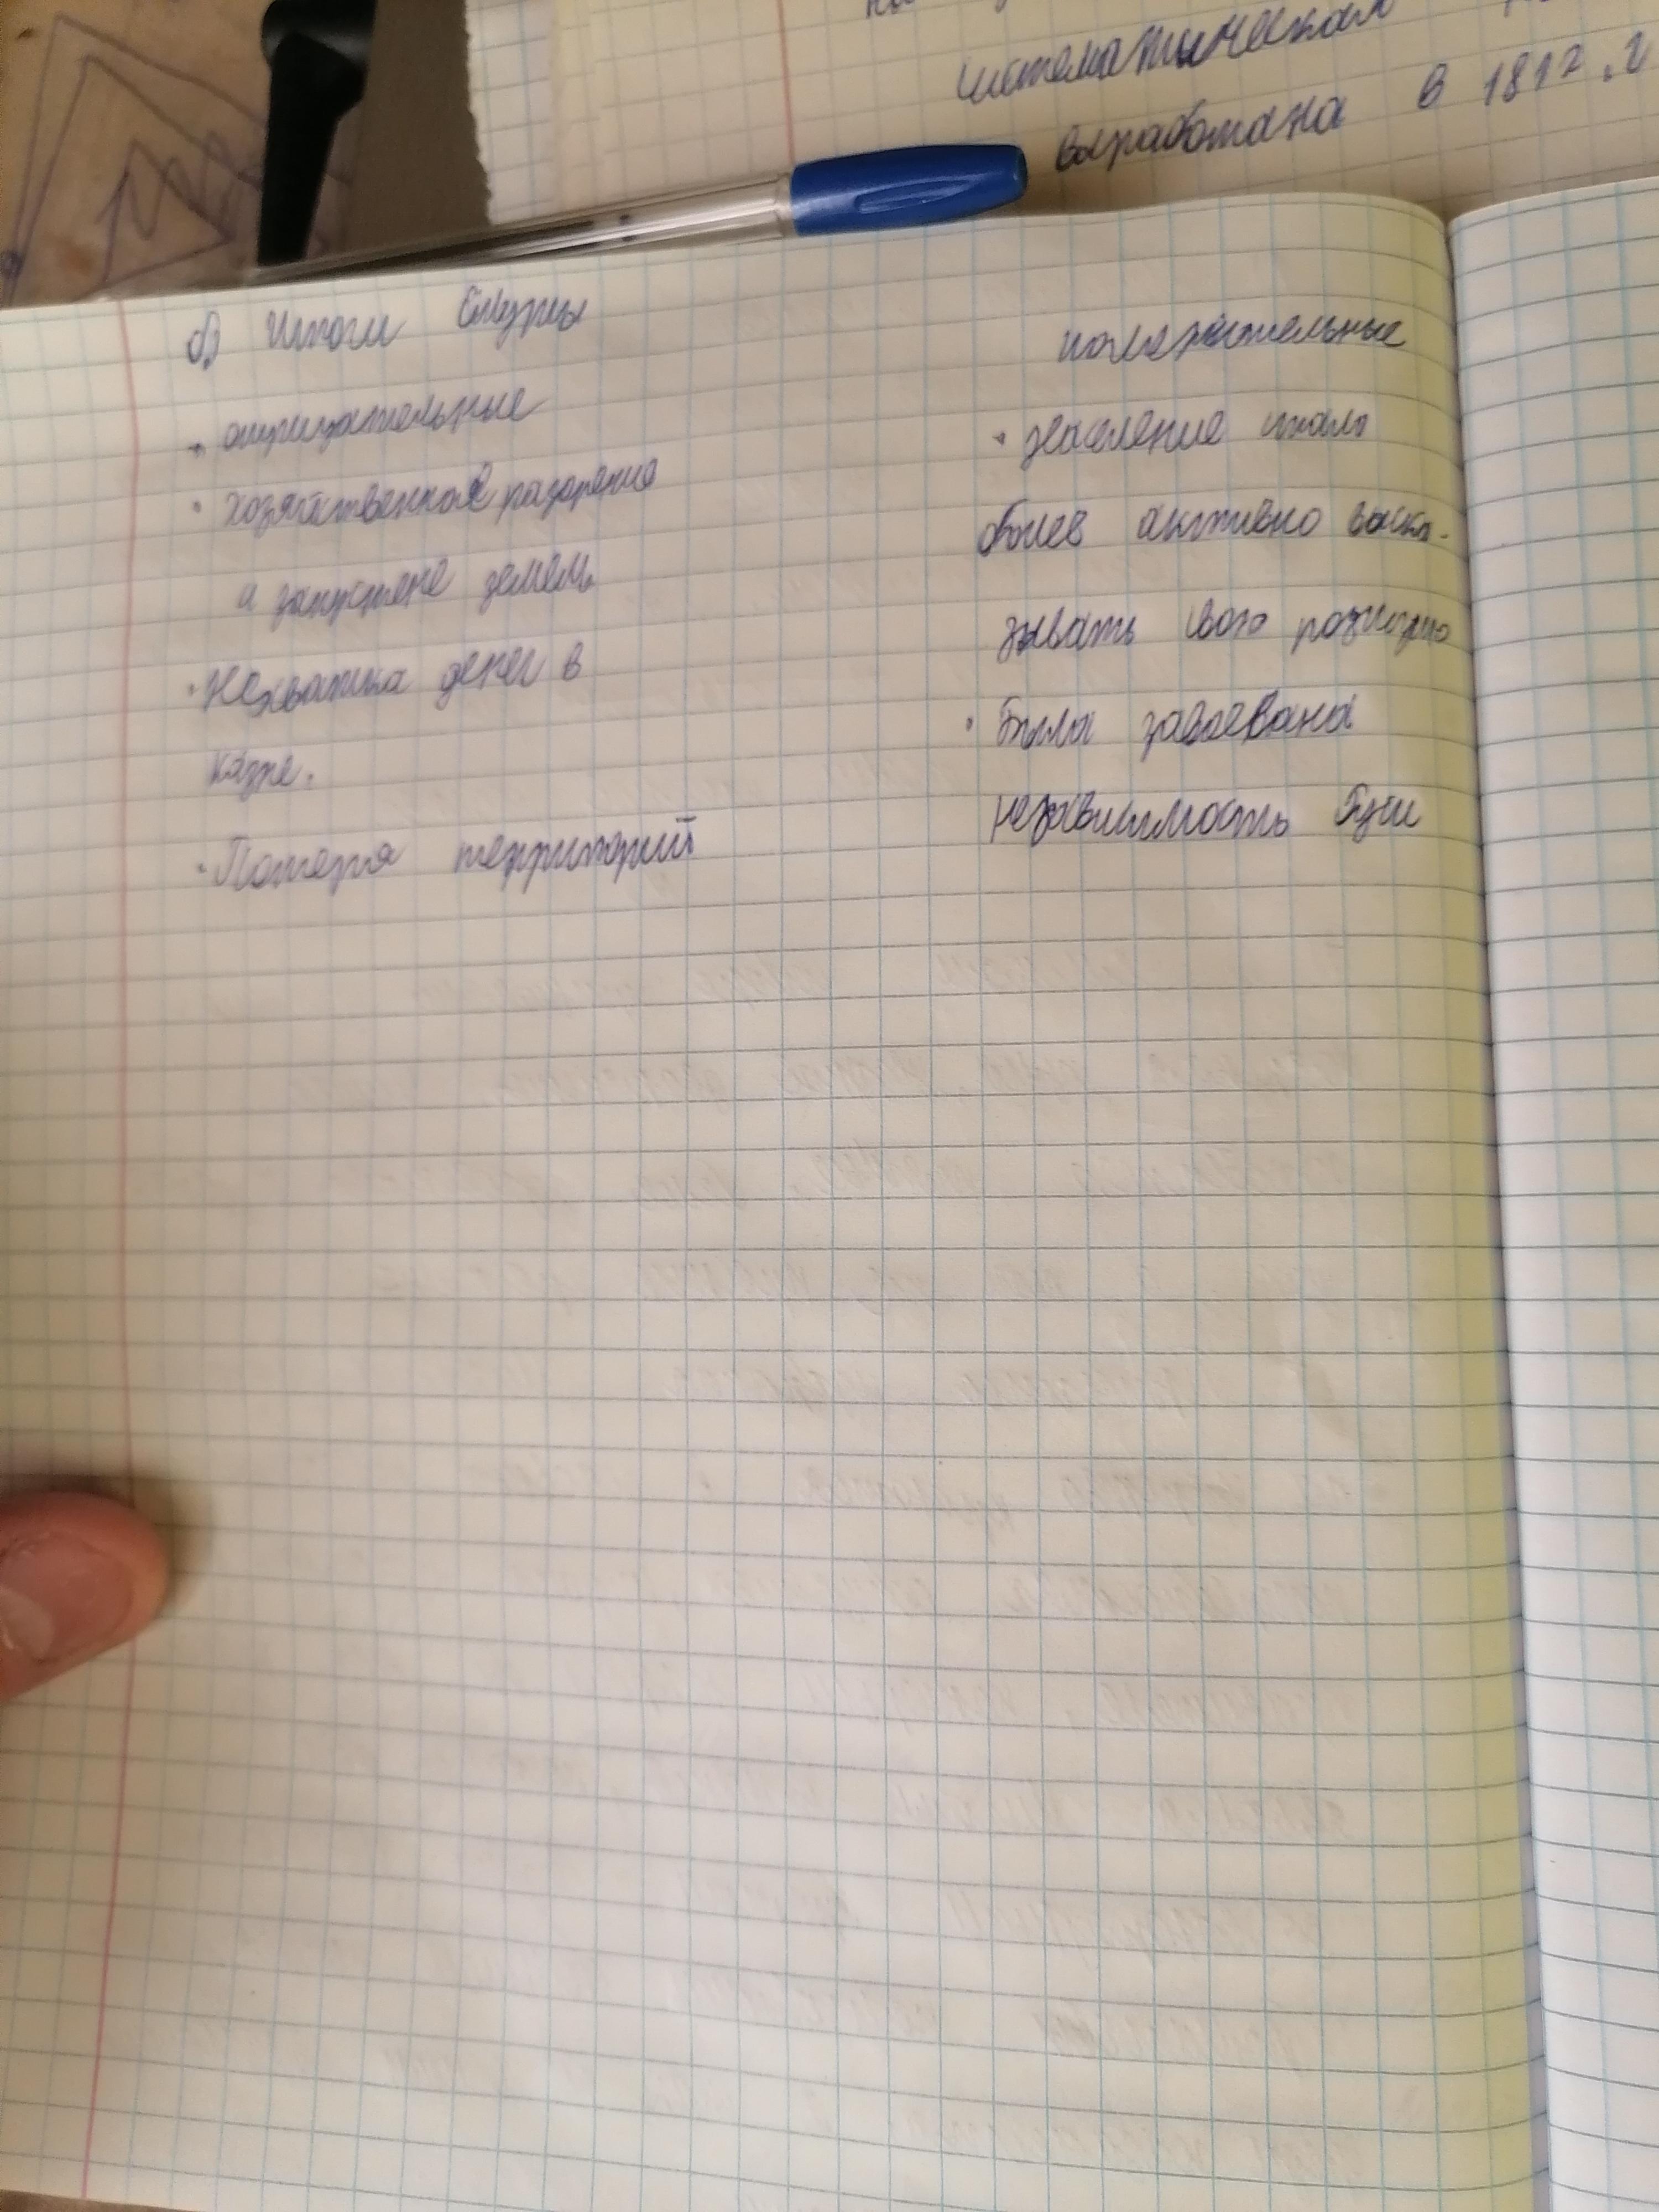 систематическая
выработана в 1812 г
б) Итоги Смуты
отрицательные
• Хозяйственное разорение
и запустене земель
• Нехватка денег в
казне.
• Потеря территорий
положительные
• население стало
более активно выска-
зывать свою позицию
• Была завоевана
независимость